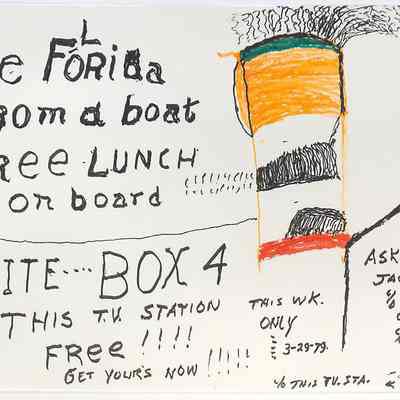 e FLORiDa
om a boat
REE LUNCH
on board
ITE···· BOX 4
THIS T.V. STATION
FREE !!!!
GET YOUR'S NOW !!!!
THIS WK.
ONLY
3-29-79.
℅ THIS T.V. STA.
ASK
JA